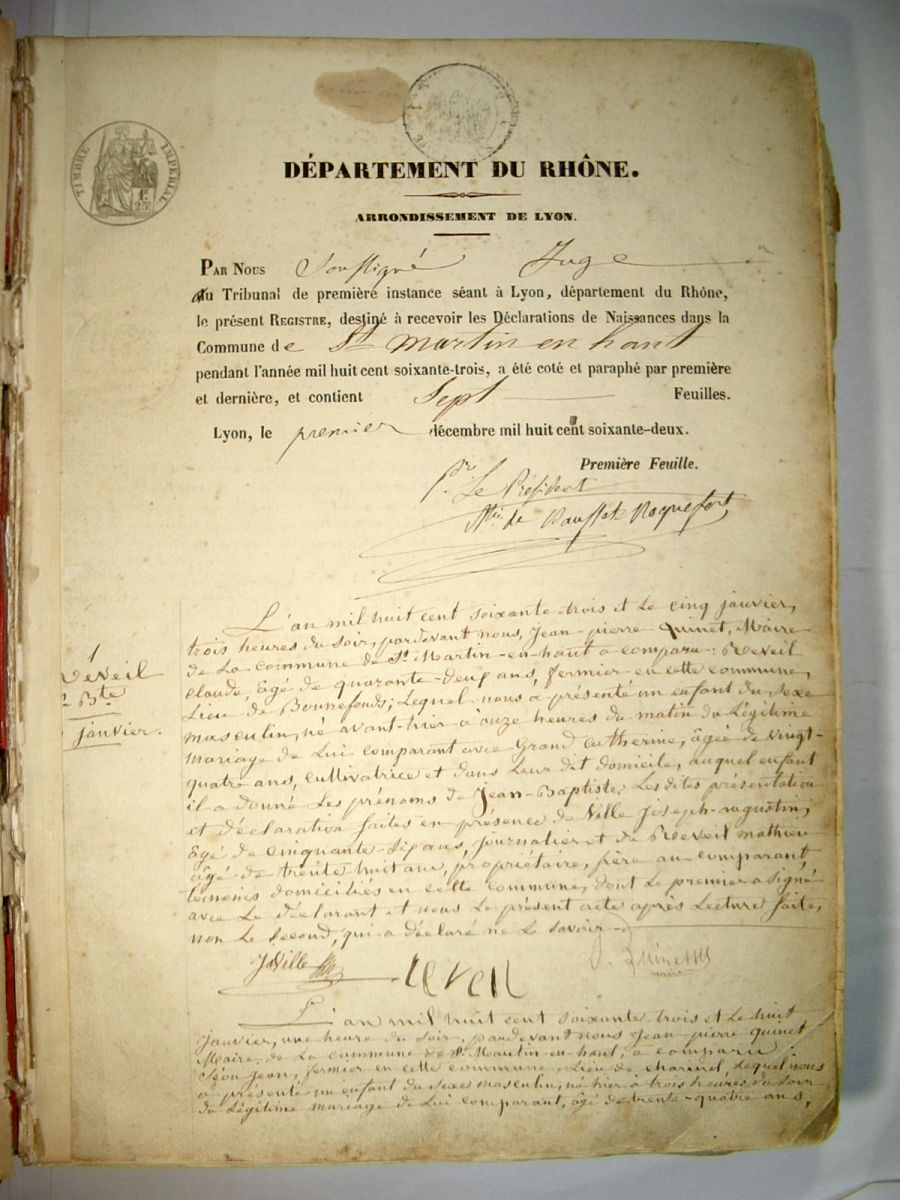 TIMBRE IMPERIAL
1F
25c
DÉPARTEMENT DU RHÔNE.
ARRONDISSEMENT DE LYON.
PAR NOUS Soussigné Juge
du Tribunal de première instance séant à Lyon, département du Rhône,
le présent REGISTRE, destiné à recevoir les Déclarations de Naissances dans la
Commune de St Martin en haut
pendant l'année mil huit cent soixante-trois, a été coté et paraphé par première
et dernière, et contient Sept Feuilles.
Lyon, le premier décembre mil huit cent soixante-deux.
Première Feuille.
pr Le Président
de Bausset Roquefort
1
Reveil
Bte
janvier.
L'an mil huit cent soixante-trois et le cinq janvier,
trois heures du soir, pardevant nous, Jean-pierre Quinet, Maire
de la commune de St Martin-en-haut a comparu : Reveil
Claude, âgé de quarante-deux ans, fermier en cette commune,
lieu de Bonnefonds; lequel nous a présenté un enfant du sexe
masculin, né avant-hier à onze heures du matin du légitime
mariage de lui comparant avec Grand Catherine, âgée de vingt-
quatre ans, cultivatrice et dans leur dit domicile, auquel enfant
il a donné les prénoms de Jean-Baptiste; Les dites présentation
et déclaration faites en présence de Ville Joseph-augustin,
âgé de cinquante-six ans, journalier et de Reveil mathieu
âgé de trente huit ans, propriétaire, frère au comparant,
témoins domiciliés en cette commune, dont le premier a signé
avec le déclarant et nous le présent acte après lecture faite,
non le second, qui a déclaré ne le savoir.
JVille reveil Quinet
maire
L'an mil huit cent soixante trois et le huit
janvier, une heure du soir, pardevant nous Jean-pierre Quinet
Maire de la commune de St Martin-en-haut, a comparu :
Jean, fermier en cette commune, lieu de , lequel nous
a présenté un enfant du sexe masculin, né hier à trois heures du soir
du légitime mariage de lui comparant, âgé de trente-quatre ans,